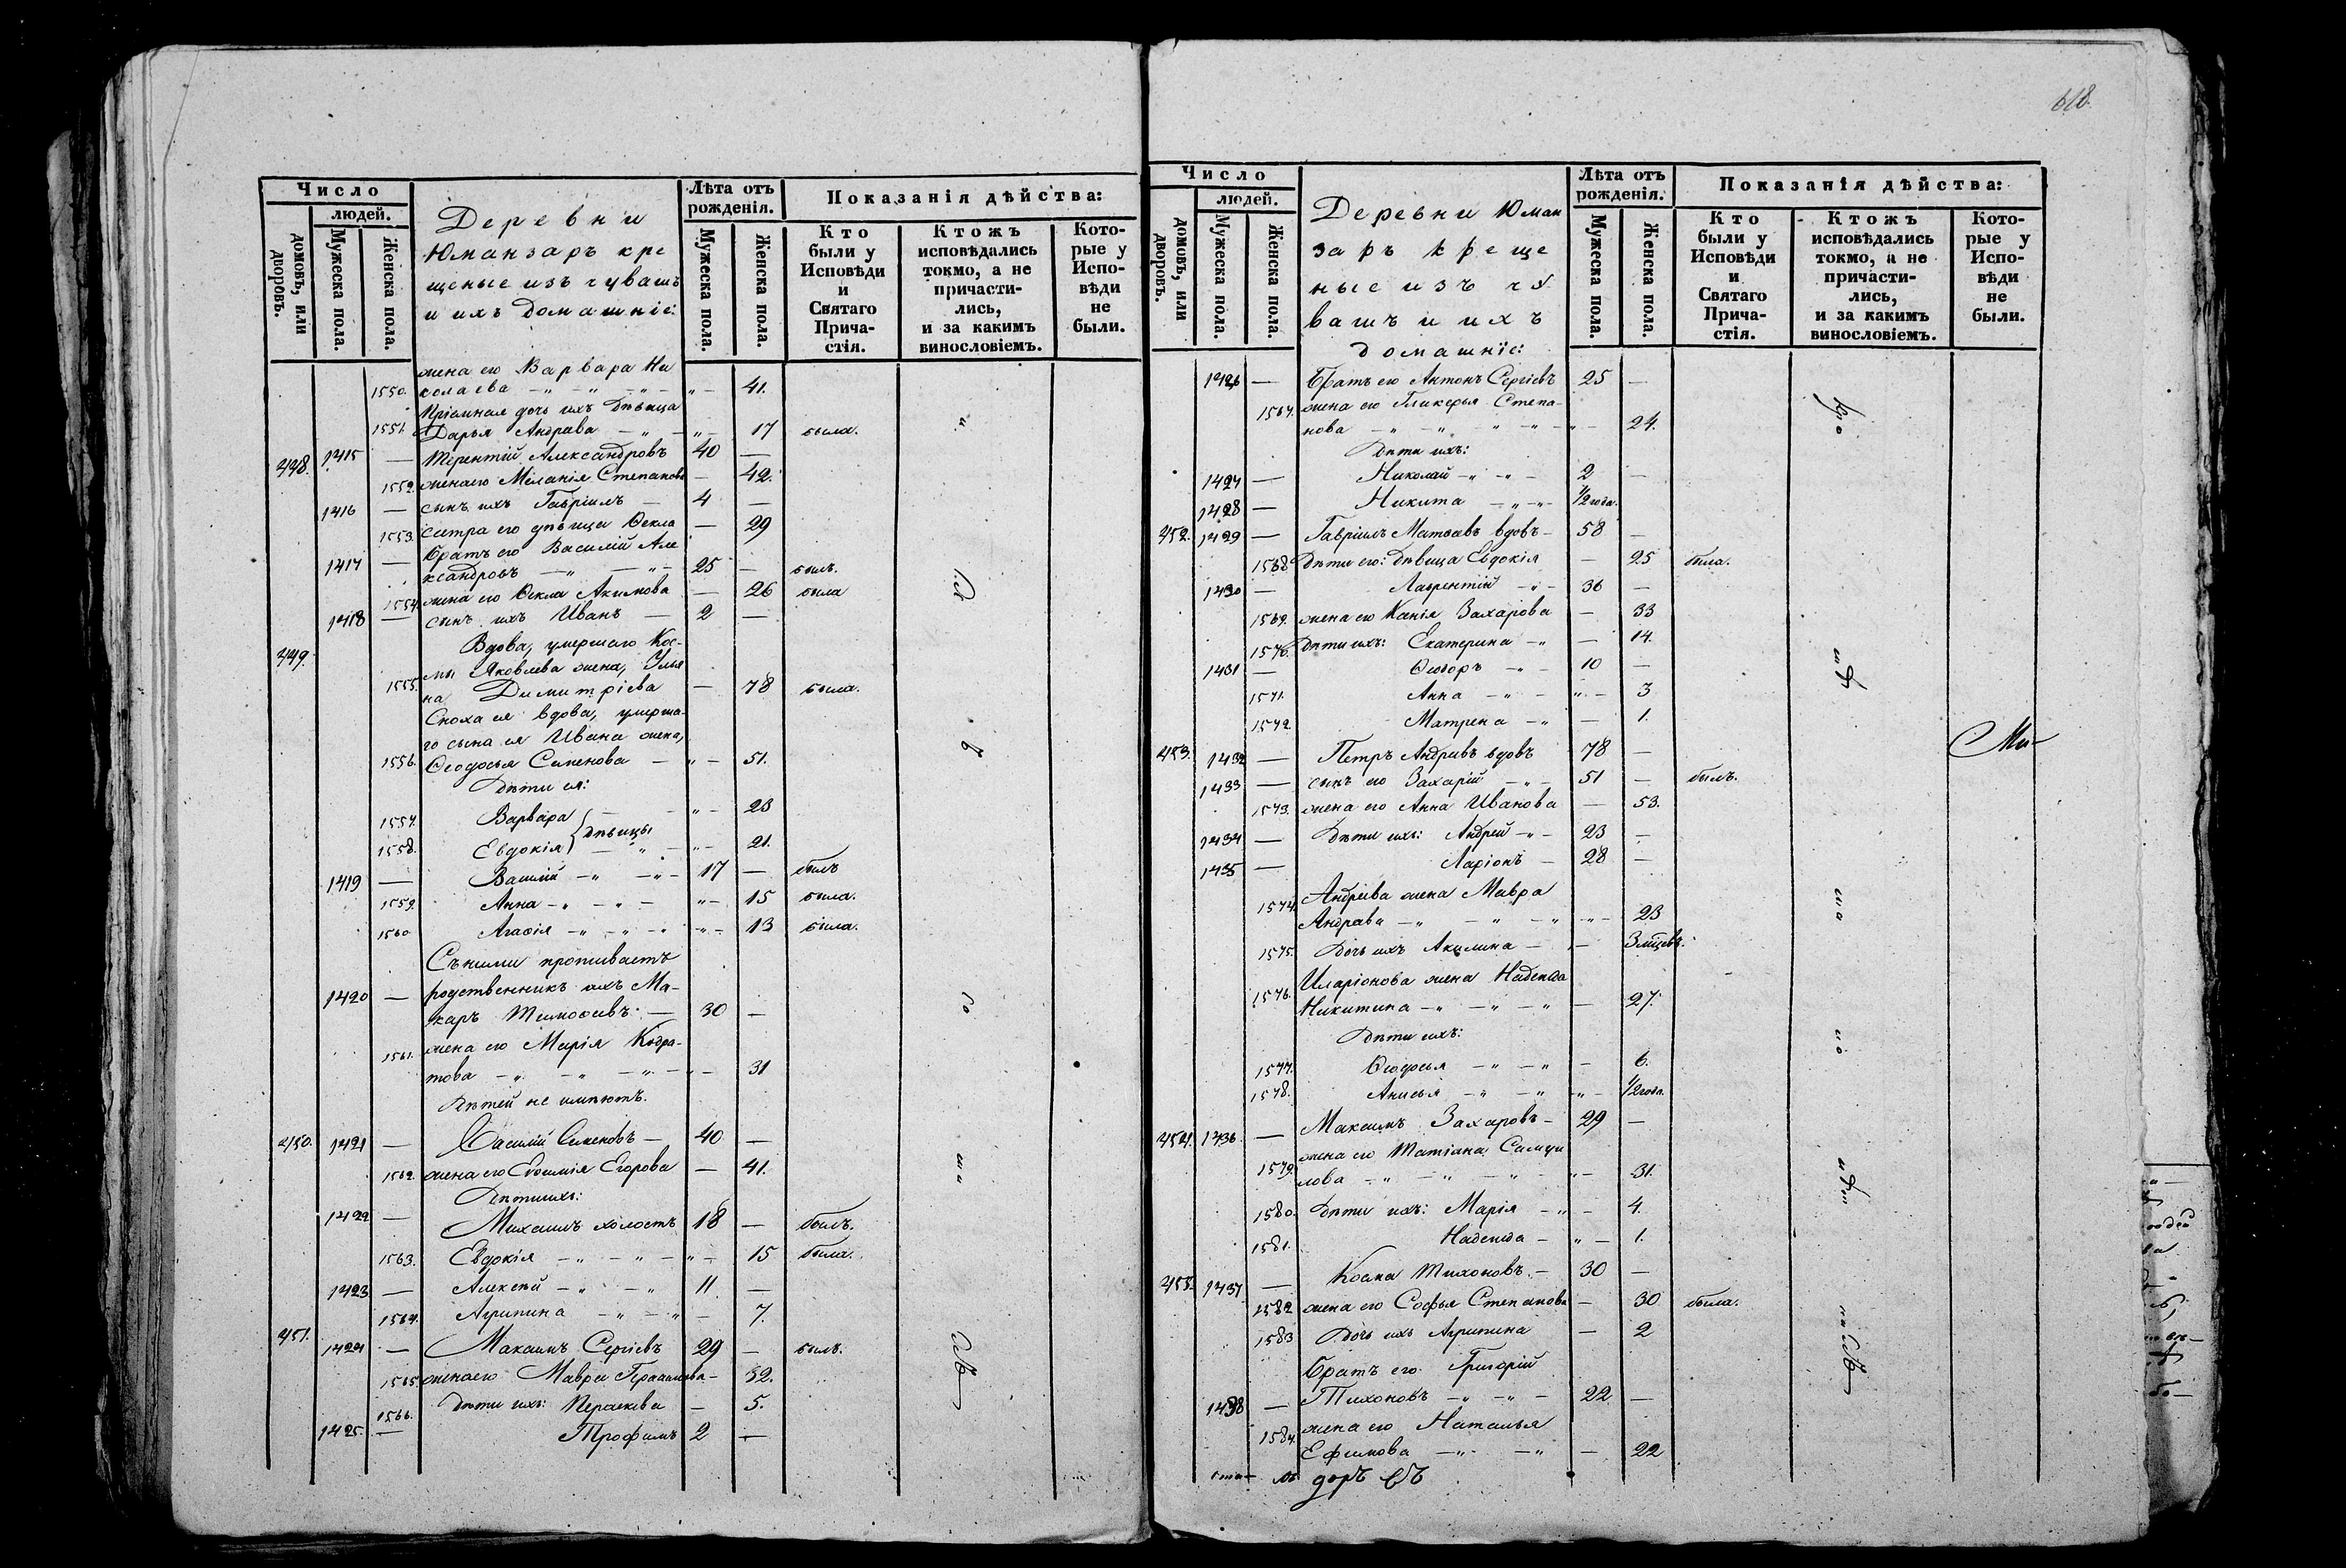 618.
Число
людей.
домовъ, или дворовъ.
Мужеска пола.
Женска пола.
Деревни
Юманзаръ кре
щеные изъ чувашъ
и ихъ домашніе:
Лѣта отъ рожденія.
Мужеска пола.
Женска пола.
Показанія дѣйства:
Кто были у Исповѣди и Святаго Прича-стія.
Ктожъ исповѣдались токмо, а не причасти-лись, и за какимъ винословіемъ.
Кото-рые у Испо-вѣди не были.
жена его Варвара Ни
1550. колаева — „ — „ — „ — 41.
Пріемная дочь ихъ дѣвица
1551. Дарья Андрева — „ — „ — 17 была.
448. 1415 — Терентій Александровъ 40 —
1552. жена его Меланія Степанова — 42.
1416 — сынъ ихъ Гавріилъ — 4 —
1553. сестра его дѣвица Ѳекла — 29
братъ его Василій Але
1417 — ксандровъ — „ — „ — 25 — былъ.
1554. жена его Ѳекла Акимова — 26 была
1418 — сынъ ихъ Иванъ — 2 —
449. Вдова, умершаго Кос-
мы Яковлева жена, Улья
1555. на Димитріева — 78 была.
Сноха ея вдова, умерша-
го сына ея Ивана жена,
1556. Ѳеодосья Семенова — „ — 51.
Дѣти ея:
1557. Варвара — „ — 23
дѣвицы
1558. Евдокія — „ — „ — 21.
1419 — Василій — „ — „ — 17 — былъ
1559. Анна — „ — „ — „ — 15 была.
1560 Агаѳія — „ — „ — „ — 13 была.
Съ ними проживаетъ
1420 — родственникъ ихъ Ма-
каръ Тимоѳеевъ — 30 —
1561. жена его Марія Кодра-
това — „ — „ — „ — 31
Дѣтей не имѣютъ.
450. 1421 — Василій Семеновъ — 40 —
1562. жена его Евѳимія Егорова — 41.
Дѣти ихъ:
1422 — Михаилъ холостъ 18 — былъ.
1563. Евдокія — „ — „ — „ — 15 была.
1423 — Алексѣй — „ — „ 11 —
1564. Агрипина — „ — „ — 7.
451. 1424 — Максимъ Сергіевъ 29 — былъ.
1565. жена его Мавра Герасимова — 32.
1566. дѣти ихъ: Перасковia — 5.
1425. — Трофимъ 2 —
Число
людей.
домовъ, или дворовъ.
Мужеска пола.
Женска пола.
Деревни Юман
заръ креще
ные изъ чу
вашъ и ихъ
домашніе:
Лѣта отъ рожденія.
Мужеска пола.
Женска пола.
Показанія дѣйства:
Кто были у Исповѣди и Святаго Прича-стія.
Ктожъ исповѣдались токмо, а не причасти-лись, и за какимъ винословіемъ.
Кото-рые у Испо-вѣди не были.
1426 — Братъ его Антонъ Сергіевъ 25 —
1567. жена его Гликерья Степа-
нова — „ — „ — „ — „ — 24.
Дѣти ихъ:
1427 — Николай — „ — „ — 2 —
1428 — Никита — „ — „ — 1/2 года.
452. 1429 — Гавріилъ Матвевъ вдовъ — 58 —
1568 Дѣти его: дѣвица Евдокія — 25 была.
1430 — Лаврентій — „ — 36 —
1569. жена его Ксенія Захарова — 33
1570. Дѣти ихъ: Екатерина — „ — 14.
1431 — Ѳеодоръ — „ — 10 —
1571. Анна — „ — „ — 3
1572. Матрена — „ — 1.
453. 1432 — Петръ Андревъ вдовъ 78 —
1433 — сынъ его Захарій — „ — 51 — былъ.
1573. жена его Анна Иванова — 53.
1434 — Дѣти ихъ: Андрей — „ — 23 —
1435 — Ларіонъ — 28 —
1574. Андреева жена Мавра
Андрава — „ — „ — „ — „ — 23
1575. Дочь ихъ Акилина — „ — 3 мѣсцевъ.
1576. Иларіонова жена Надежда
Никитина — „ — „ — „ — 27.
Дѣти ихъ:
1577. Ѳеодосья — „ — „ — 6.
1578. Анисья — „ — „ — „ — 1/2 года.
454. 1436 — Максимъ Захаровъ — 29 —
1579. жена его Татіана Самуи
лова — „ — „ — „ — „ — 31.
1580. Дѣти ихъ: Марія — „ — 4.
1581. Надежда — „ — 1.
455. 1437 — Косма Тихоновъ — 30 —
1582 жена его Софья Степанова — 30 была.
1583 Дочь ихъ Агрипина — 2
Братъ его Григорій
1438 — Тихоновъ — „ — „ — 22 —
1584. жена его Наталья
Ефимова — „ — „ — 22